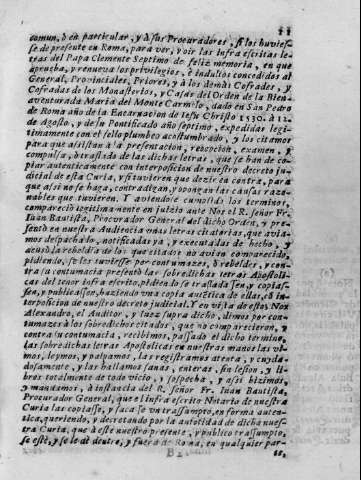 11
comun, ò en particular, y à sus Procuradores, si los huvies-
se de presente en Roma, para ver, y oir las infraescritas le-
tras del Papa Clemente Septimo de feliz memoria, en que
aprueba, y renueva los privilegios, è indultos concedidos al
General, Provinciales, Priores, y à los demàs Cofrades, y
Cofradas de los Monasterios, y Casas del Orden de la Bien-
aventurada Maria del Monte Carmelo, dado en San Pedro
de Roma año de la Encarnacion de Iesu Christo 1530. à 12.
de Agosto, y de su Pontificado año septimo, expedidas legi-
timamente con el sello plumbeo acostumbrado, y los citamos
para que asistan à la presentacion, recepcion, examen, y
compulsa, ò traslado de las dichas letras, que se han de co-
piar autenticamente con interposicion de nuestro decreto ju-
dicial de esta Curia, y si tuvieren que dezir en contra, para
que assi no se haga, contradigan, y opongan las causas razo-
nables que tuvieren. Y aviendose cumplido los terminos,
compareciò legitimamente en juizio ante Nos el R. señor Fr.
Iuan Bautista, Procurador General del dicho Orden, y pre-
sentò en nuestra Audiencia unas letras citatorias, que avia-
mos despachado, notificadas ya, y executadas de hecho, y
acusò la rebeldia de los que citados no avian comparecido,
pidiendo, se les tuviesse por contumazes, y rebeldes, y con-
tra su contumacia presentò las sobredichas letras Apostoli-
cas del tenor infraescrito, pidiendo se trasladassen, y copias-
sen, y publicassen, haziendo una copia autetica de ellas, cõ in-
terposicion de nuestro decreto judicial. Y en vista de esto, Nos
Alexandro, el Auditor, y Iuez supra dicho, dimos por con-
tumazes à los sobredichos citados, que no comparecieron, y
contra su contumacia, recibimos, passado el dicho termino,
las sobredichas letras Apostolicas en nuestras manos las vi-
mos, leymos, y palpamos, las registramos atenta, y cuyda-
dosamente, y las hallamos sanas, enteras, sin lesion, y li-
bres totalmente de todo vicio, y sospecha, y assi hizimos,
y mandamos, à instancia del R. señor Fr. Iuan Bautista,
Procurador General, que el infraescrito Notario de nuestra
Curia las copiasse, y sacasse un trassumpto, en forma auten-
tica, queriendo, y decretando por la autoridad de dicha nues-
tra Curia, que à este nuestro presente, y publico trassumpto,
se estè, y se le dè
y fuera de Roma, en qualquier par-